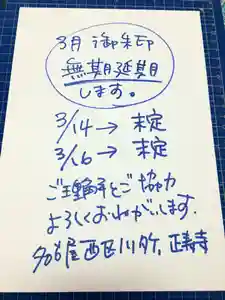 3月 御朱印
無期延期
します。
3/14→ 未定
3/16→ 未定
ご理解とご協力
よろしくおねがいします。
名古屋西区 正善寺